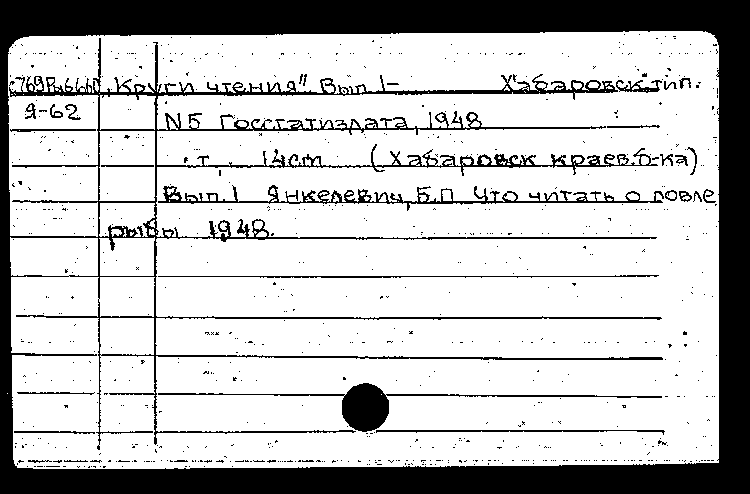 „Круги чтения" Вып 1- Хабаровск, тип.
Я-62
N5 Госстатиздата, 1948
.т. 14cm (Хабаровск краев.б-ка)
Вып.1 Янкелевич, Б.П Что читать о ловле
рыбы 1948.